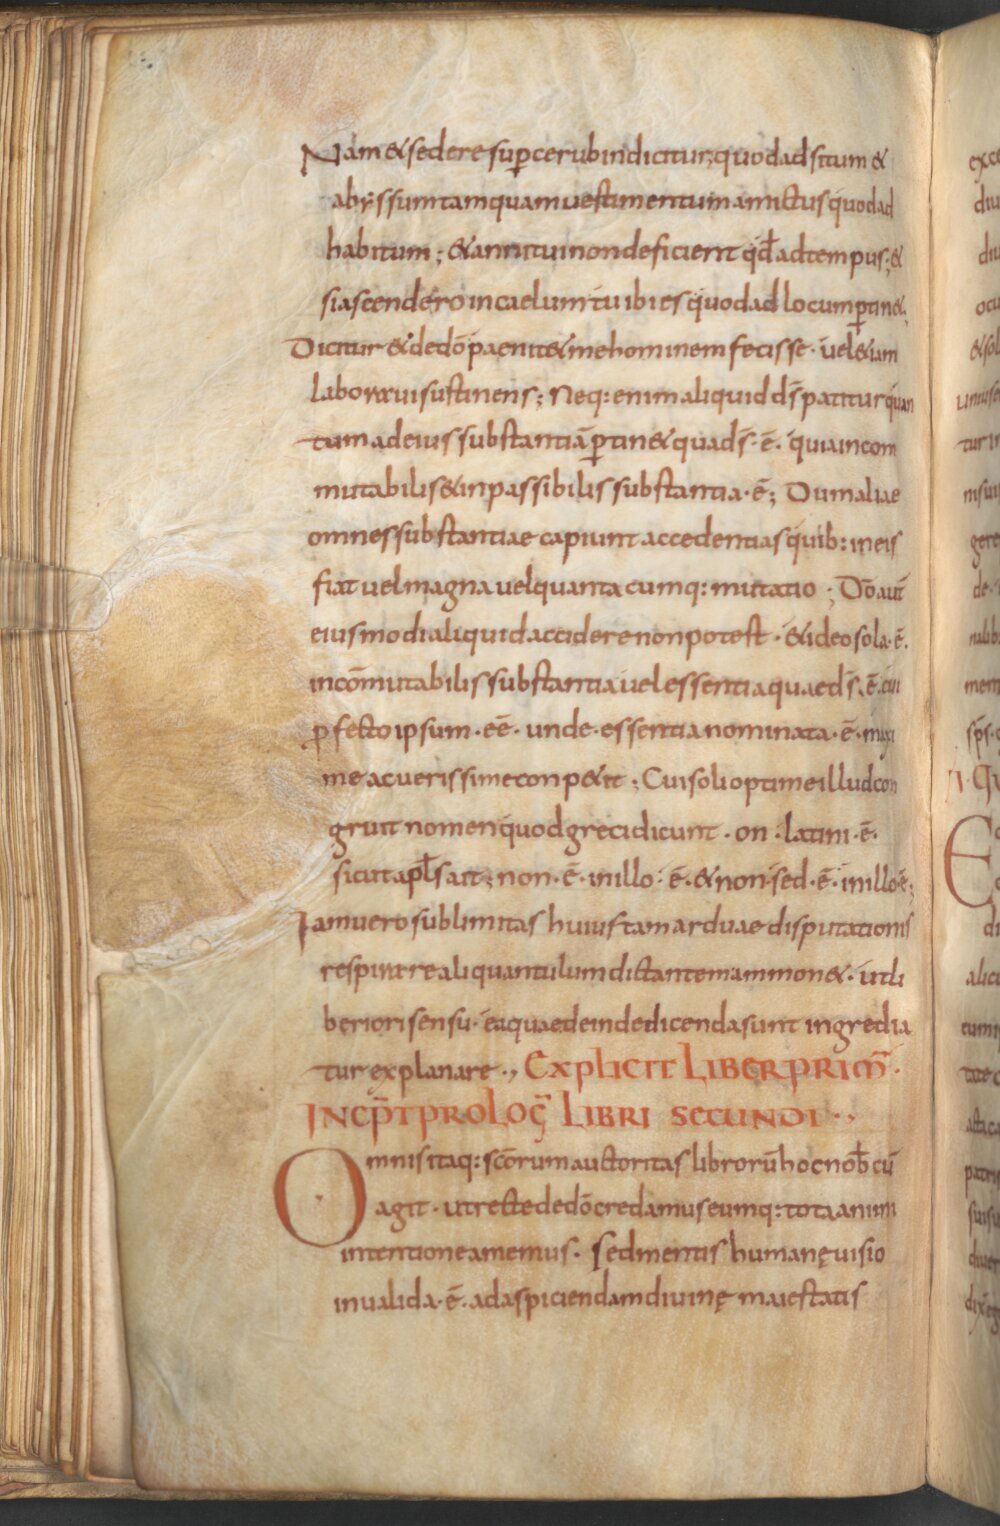 Nam & sedere sup̱ cerubin dicitur; quod ad situm &
abyssum tamquam uestimentum amictus quod ad
habitum ; & anni tui non deficient qđ ad tempus ; &
si ascendero in caelum tu ibi es quod ad locum p̱tin&.
Dicitur & de dō paenit& me hominem fecisse · uel &iam
laboraui sustinens ; Neq: enim aliquid d̄s patitur quan
tum ad eius substantiā p̱tin& qua d̄s · ē · quia incom
mutabilis & inpassibilis substantia · ē ; Dum aliae
omnes substantiae capiunt accedentias quib: in eis
fiat uel magna uel quantacumq: mutatio ; Dō aut̄
eiusmodi aliquid accidere non potest · & ideo sola · ē ·
incōmutabilis substantia uel essentia quae d̄s · ē · cui
p̱fecto ipsum · eē · unde · essentia nominata · ē · maxi
me ac uerissime conp&it ; Cui soli optime illud con
gruit nomen quod greci dicunt · on · latini · ē ·
sicut apłs ait ; non · ē · in illo · ē · & non · sed · ē · in illo · ē ;
Iam uero sublimitas huius tam arduae disputationis
respirare aliquantulum dictantem ammon& · ut li
beriori sensu · ea quae deinde dicenda sunt ingredia
tur explanare ·, EXPLICIT LIBER PRIM̄ ·
INCP̄T PROLOḠ LIBRI SECUNDI · ,
Omnis itaq: scōrum auctoritas librorū hoc nob̄ cū
agit · ut recte de dō credamus eumq: tota animi
intentione amemus · Sed mentis humanę uisio
inualida · ē · ad aspiciendam diuinę maiestatis